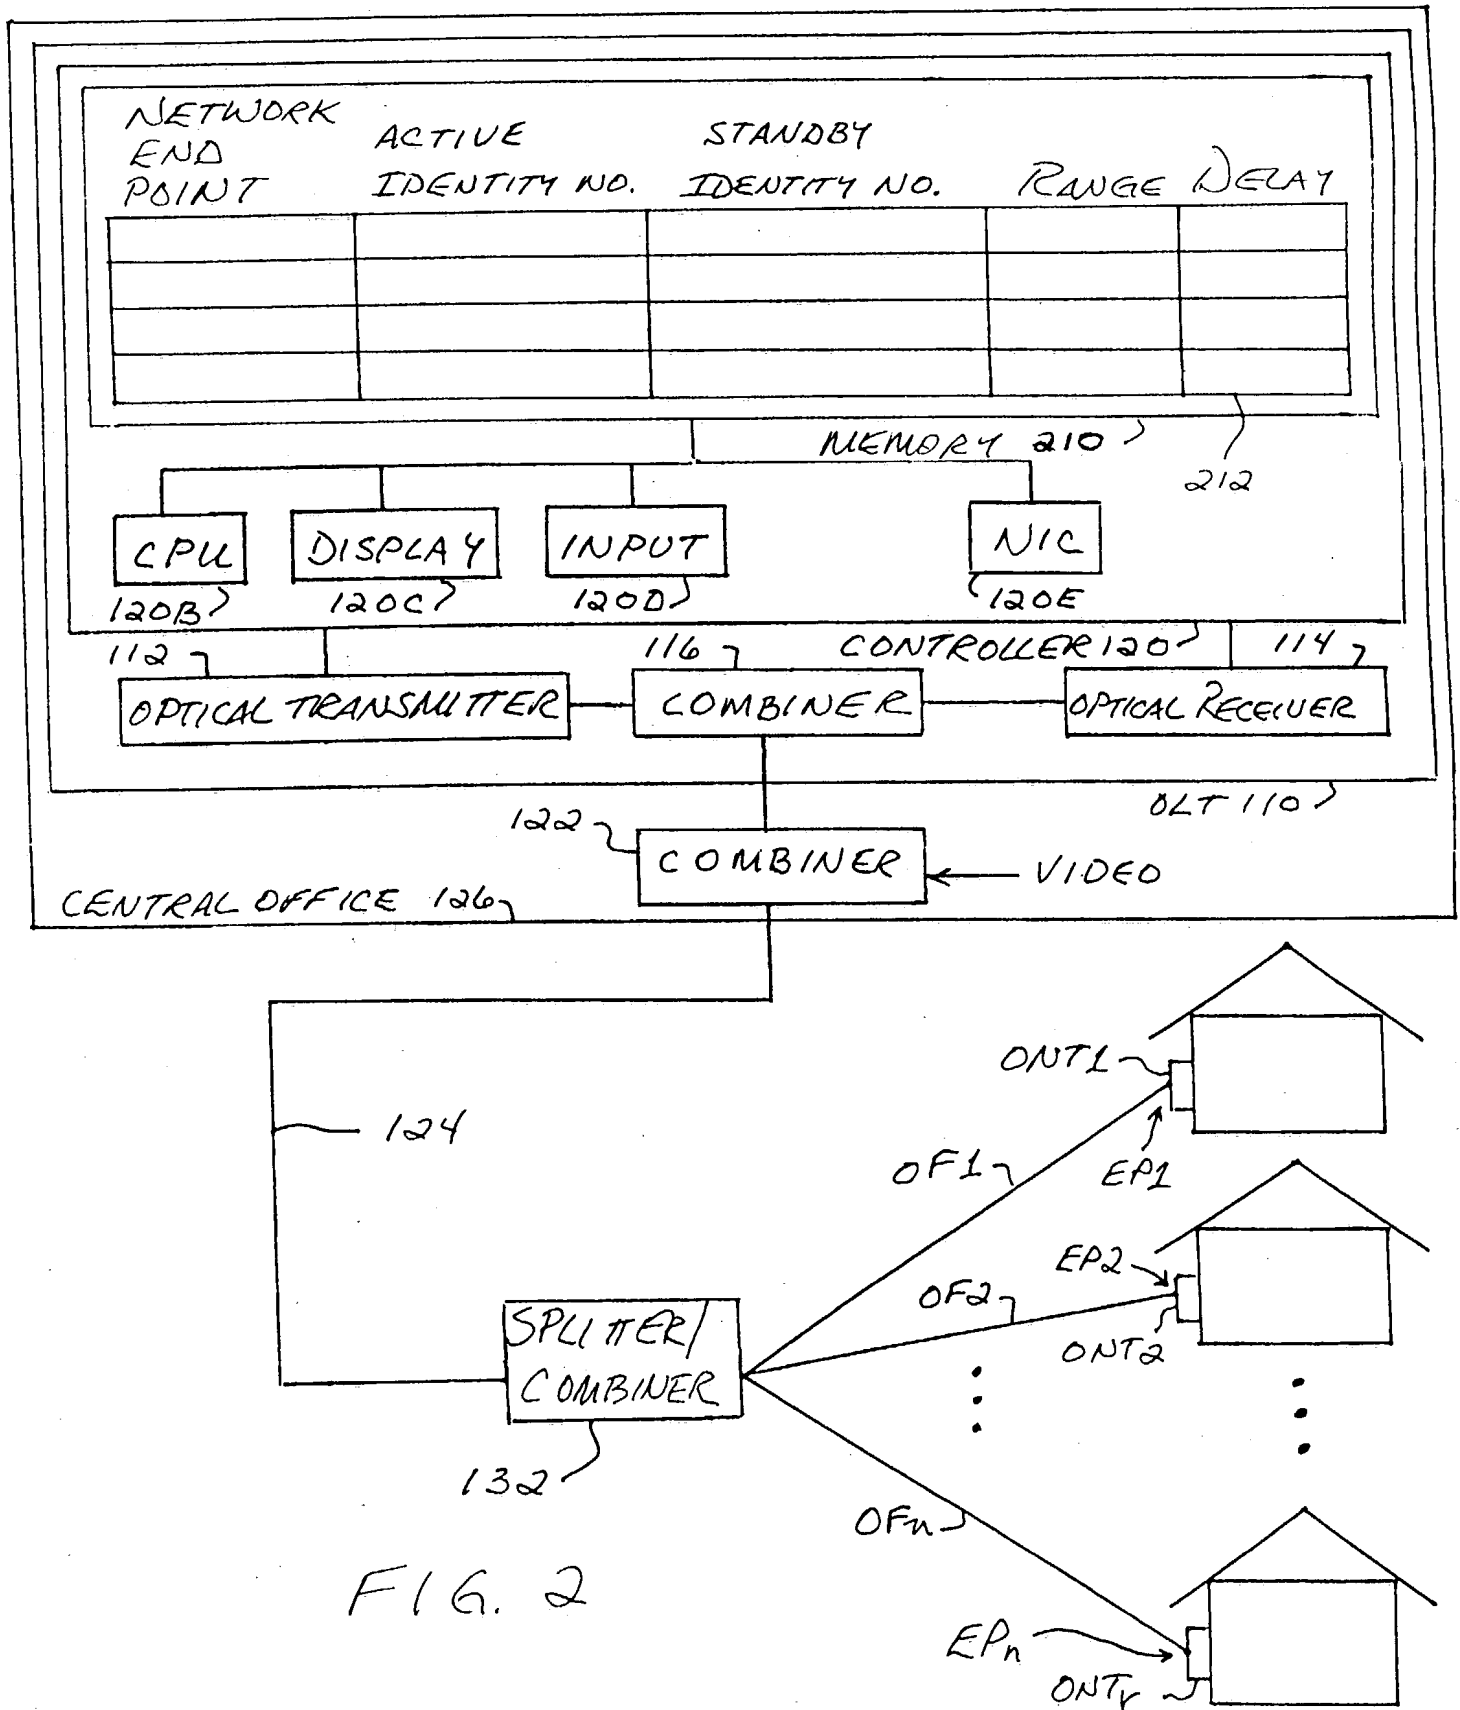 NETWORK
END
POINT
ACTIVE
IDENTITY NO.
STANDBY
IDENTITY NO.
RANGE
DELAY
MEMORY 210
212
CPU
120B
DISPLAY
120C
INPUT
120D
NIC
120E
CONTROLLER 120
112
OPTICAL TRANSMITTER
116
COMBINER
114
OPTICAL RECEIVER
OLT 110
122
COMBINER
VIDEO
CENTRAL OFFICE 126
124
ONT1
EP1
OF1
EP2
OF2
ONT2
SPLITTER/
COMBINER
132
OFn
EPn
ONTr
FIG. 2